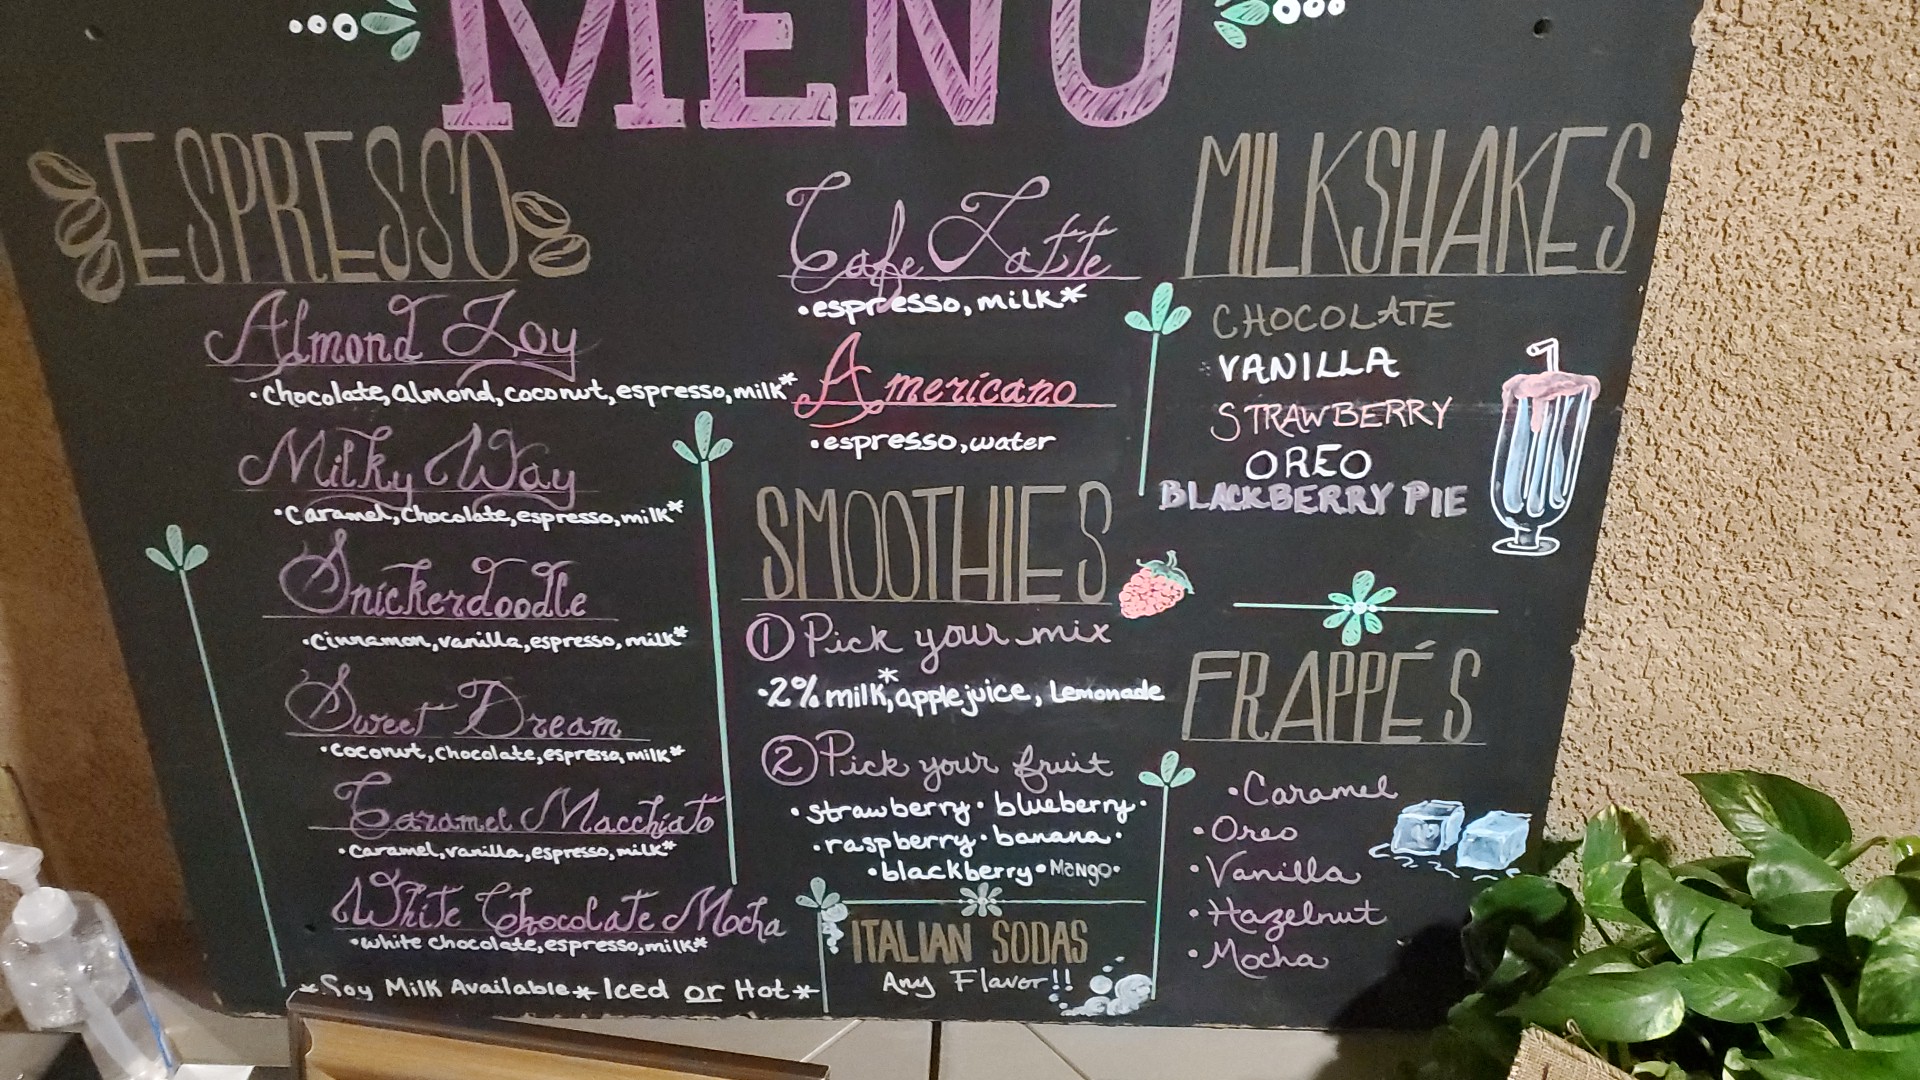 MENU
ESPRESSO
Almond Joy
• chocolate, almond, coconut, espresso, milk*
Milky Way
• caramel, chocolate, espresso, milk*
Snickerdoodle
• cinnamon, vanilla, espresso, milk*
Sweet Dream
• coconut, chocolate, espresso, milk*
Caramel Macchiato
• caramel, vanilla, espresso, milk*
White Chocolate Mocha
• white chocolate, espresso, milk*
* Soy Milk Available * Iced or Hot *
Cafe Latte
• espresso, milk*
Americano
• espresso, water
SMOOTHIES
① Pick your mix
• 2% milk*, apple juice, Lemonade
② Pick your fruit
• strawberry • blueberry •
• raspberry • banana •
• blackberry • Mango •
ITALIAN SODAS
Any Flavor!!
MILKSHAKES
CHOCOLATE
VANILLA
STRAWBERRY
OREO
BLACKBERRY PIE
FRAPPÉS
• Caramel
• Oreo
• Vanilla
• Hazelnut
• Mocha